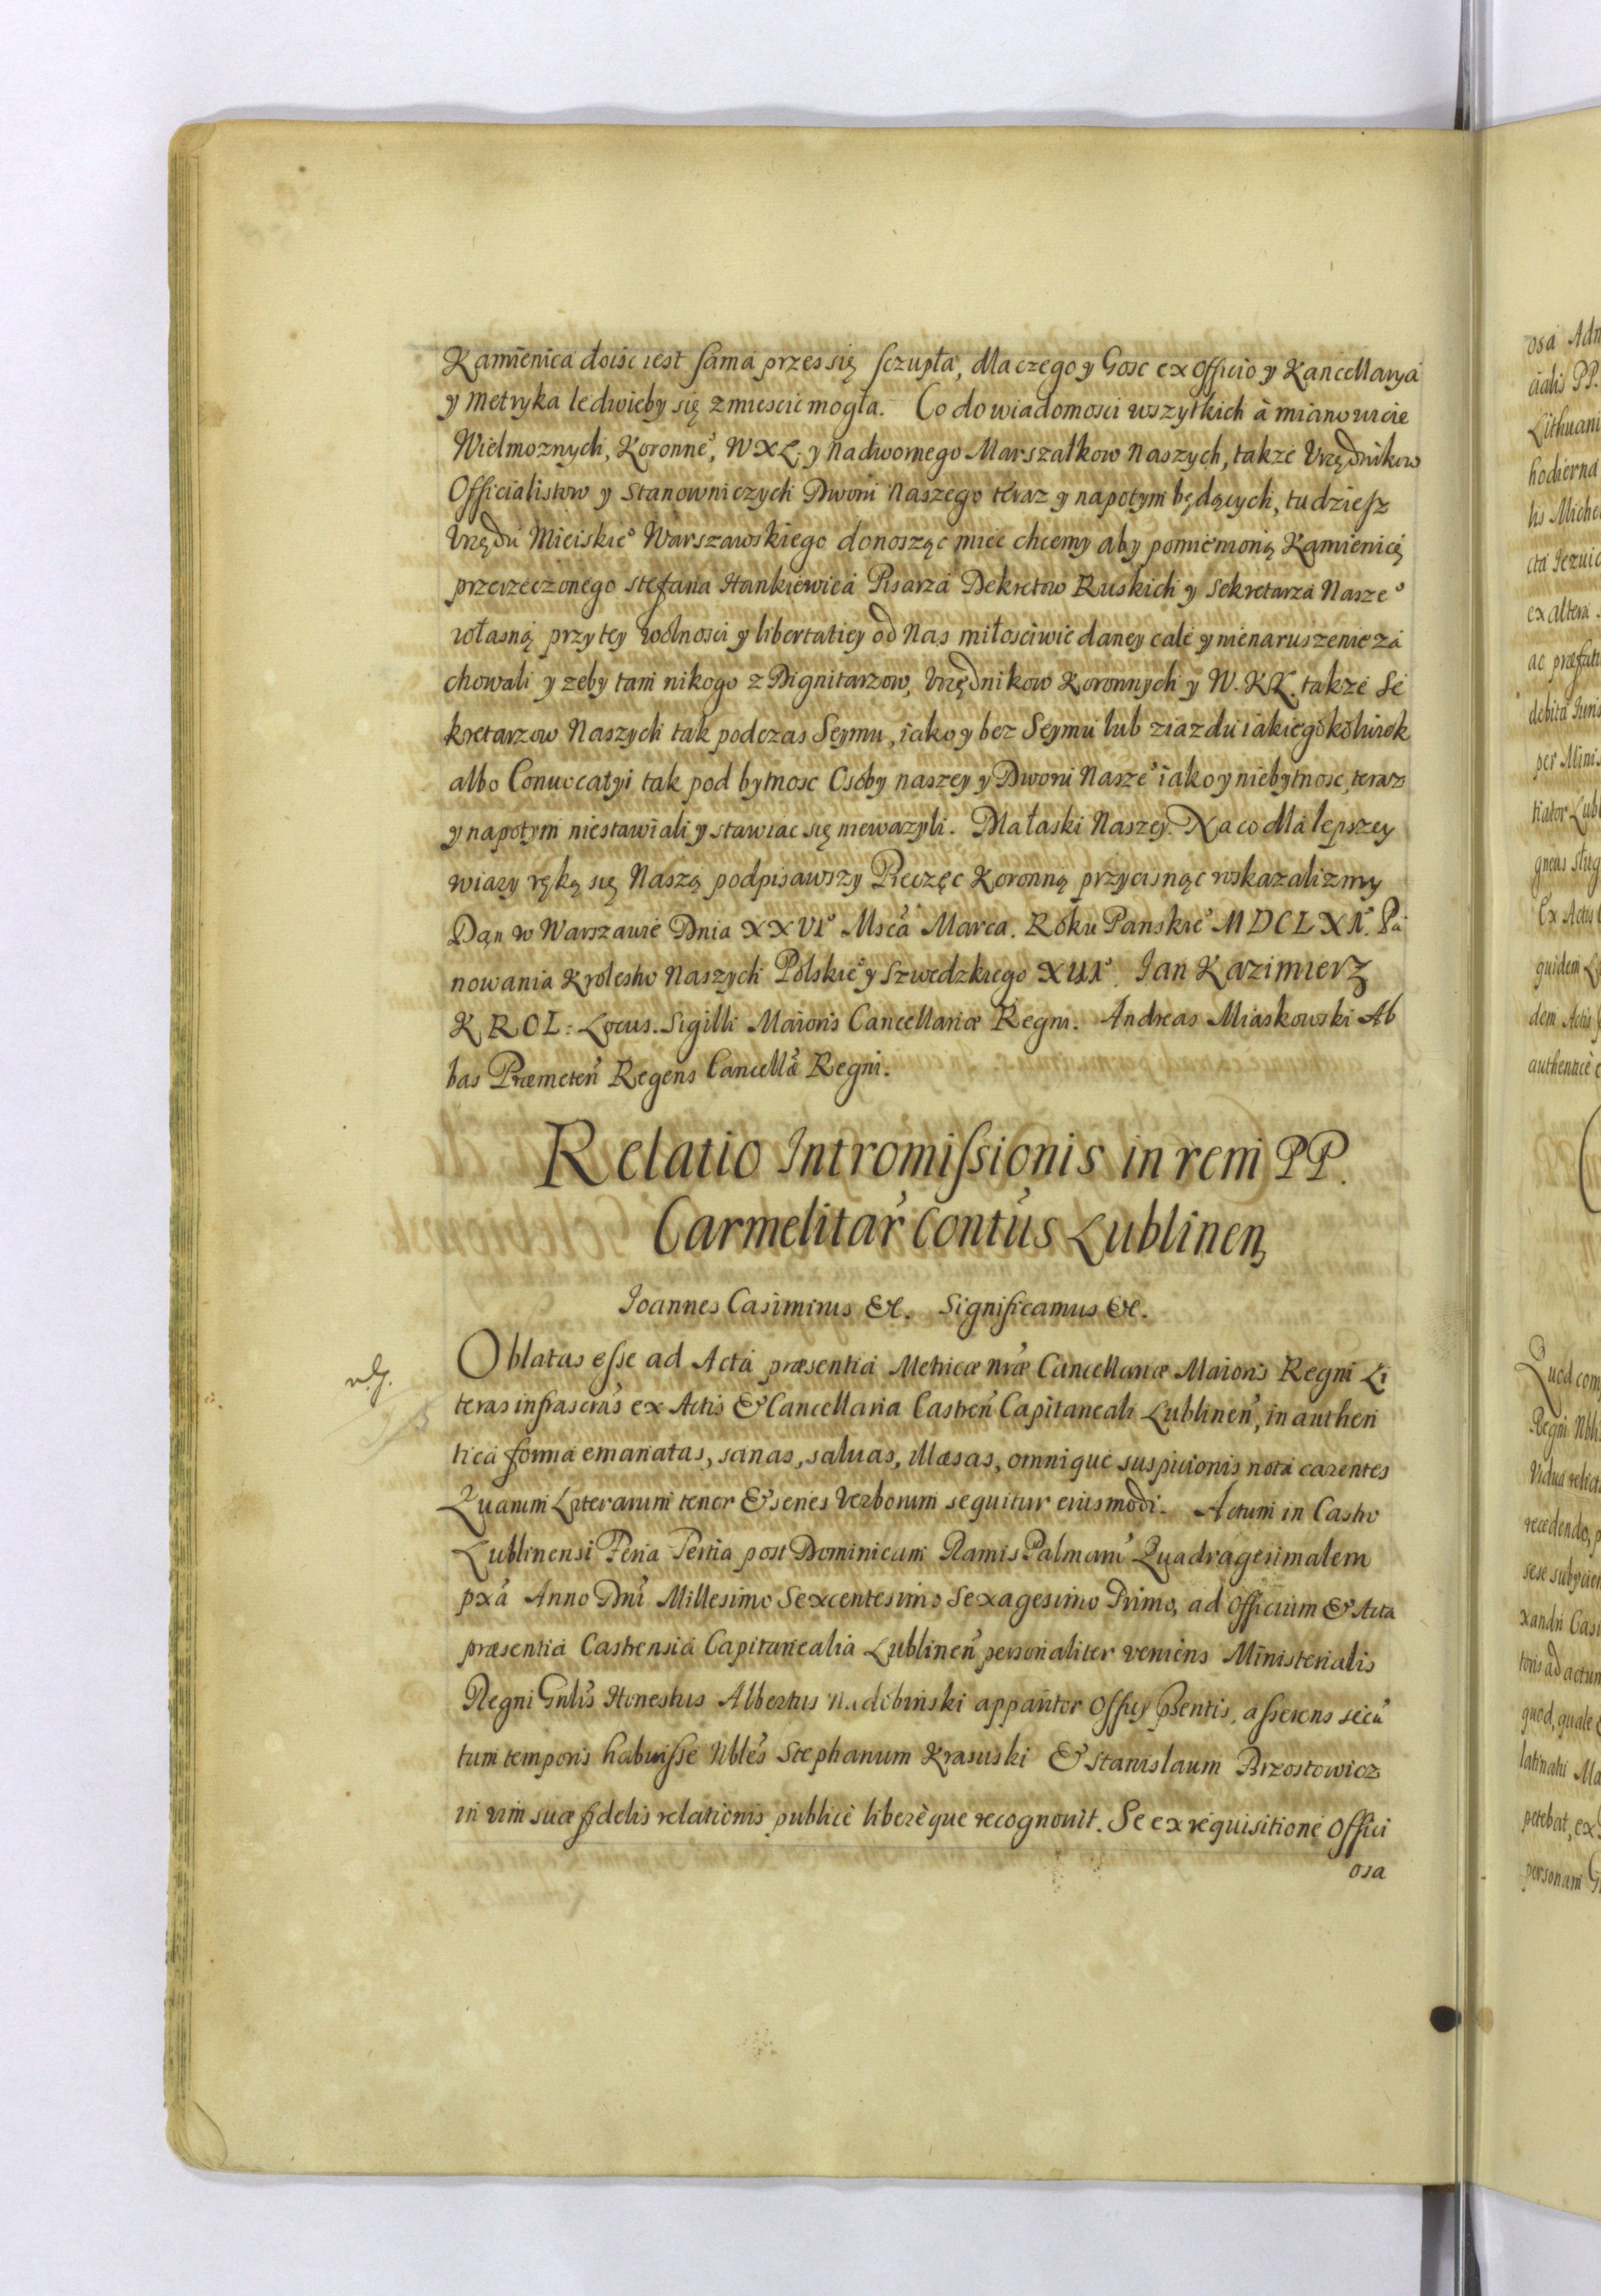 Kamienica doisc iest sama przes się sczupła, dla czego y Gosc ex officio y Kancellarya
y Metryka ledwieby się zmiescic mogła. Co do wiadomosci wszytkich à mianowicie
Wielmoznych, Koronne°, WXL: y nadwornego Marszałkow Naszych, takze Vrzędnikow
Officialistow y Stanowniczych Dworu Naszego teraz y napotym będących, tudziesz
Vrzędu Mieiskie° Warszawskiego donosząc miec chcemy aby pomienioną Kamienicę
przerzeczonego Stefana Hankiewica Pisarza Dekretow Ruskich y Sekretarza Nasze°
własną przy tey wolnosci y libertatiey od Nas miłosciwie daney cale y nienaruszenie za
chowali y zeby tam nikogo z Dignitarzow, Vrzędnikow Koronnych y W.X.L. takze Se
kretarzow Naszych tak podczas Seymu, iako y bez Seymu lub ziazdu iakiegokolwiek
albo Conuocatyi tak pod bytnosc Osoby naszey y Dworu Nasze° iako y niebytnosc, teraz
y napotym niestawiali y stawiac się niewazyli. Dla łaski Naszey. Na co dla lepszey
wiary ręką się Naszą podpisawszy Pieczęc Koronną przycisnąc roskazalizmy
Dan w Warszawie Dnia XXVI° Msca Marca. Roku Panskie° MDCLXI°. Pa
nowania Krolestw Naszych Polskie° y Szwedzkiego XIII°. Ian Kazimierz
KROL: Locus. Sigilli Maioris Cancellariæ Regni. Andreas Miaskowski Ab
bas Præmeten Regens Cancellæ Regni.
Relatio Intromissionis in rem PP.
Carmelitar Contus Lublinen
Ioannes Casimirus &c. Significamus &c.
Oblatas esse ad Acta præsentia Metricæ nræ Cancellariæ Maioris Regni Li
teras infrascras ex Actis & Cancellaria Castren Capitaneali Lublinen, in authen
tica forma emanatas, sanas, saluas, illæsas, omnique suspicionis nota carentes
Quarum Literarum tenor & series verborum sequitur eiusmodi. Actum in Castro
Lublinensi Feria Tertia post Dominicam Ramis Palmarū Quadragesimalem
pxa Anno Dni Millesimo Sexcentesimo Sexagesimo Primo, ad Officium & Acta
præsentia Castrensia Capitanealia Lublinen personaliter veniens Ministerialis
Regni Gnlis Honestus Albertus appantor Officy Psentis, asserens secū
tum temporis habuisse Nbles Stephanum Krasuski & Stanislaum Brzostowicz
in vim suæ fidelis relationis publice libereque recognouit. Se ex requisitione Offici
osa